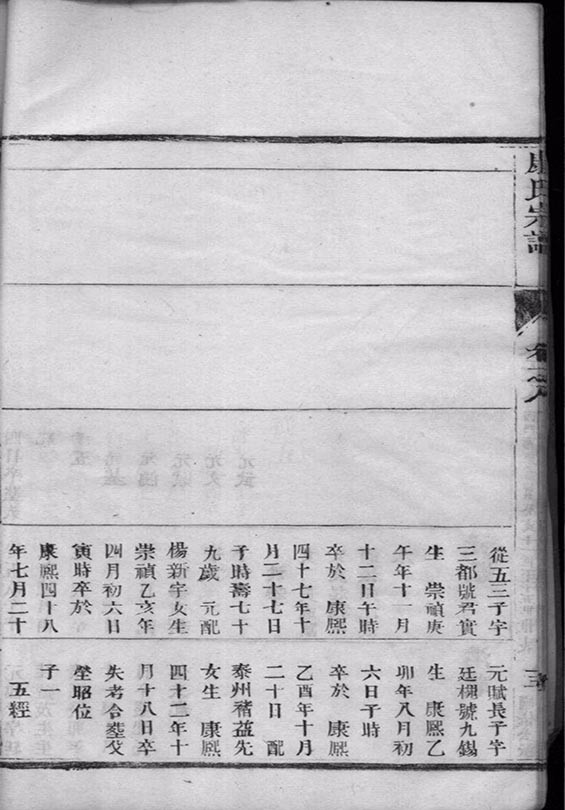 氏宗譜
從五三子字
三都號君實
生 崇禎庚
午年十一月
十二日午時
卒於 康熙
四十七年十
月二十七日
子時壽七十
九歲 元配
楊新宇女生
崇禎乙亥年
四月初六日
寅時卒於
康熙四十八
年七月二十
元賦長子字
廷 號九錫
生 康熙乙
卯年八月初
六日子時
卒於 康熙
乙酉年十月
二十日 配
泰州褚益先
女生 康熙
四十二年十
月十八日卒
失考合塟父
塋昭位
子一
五經